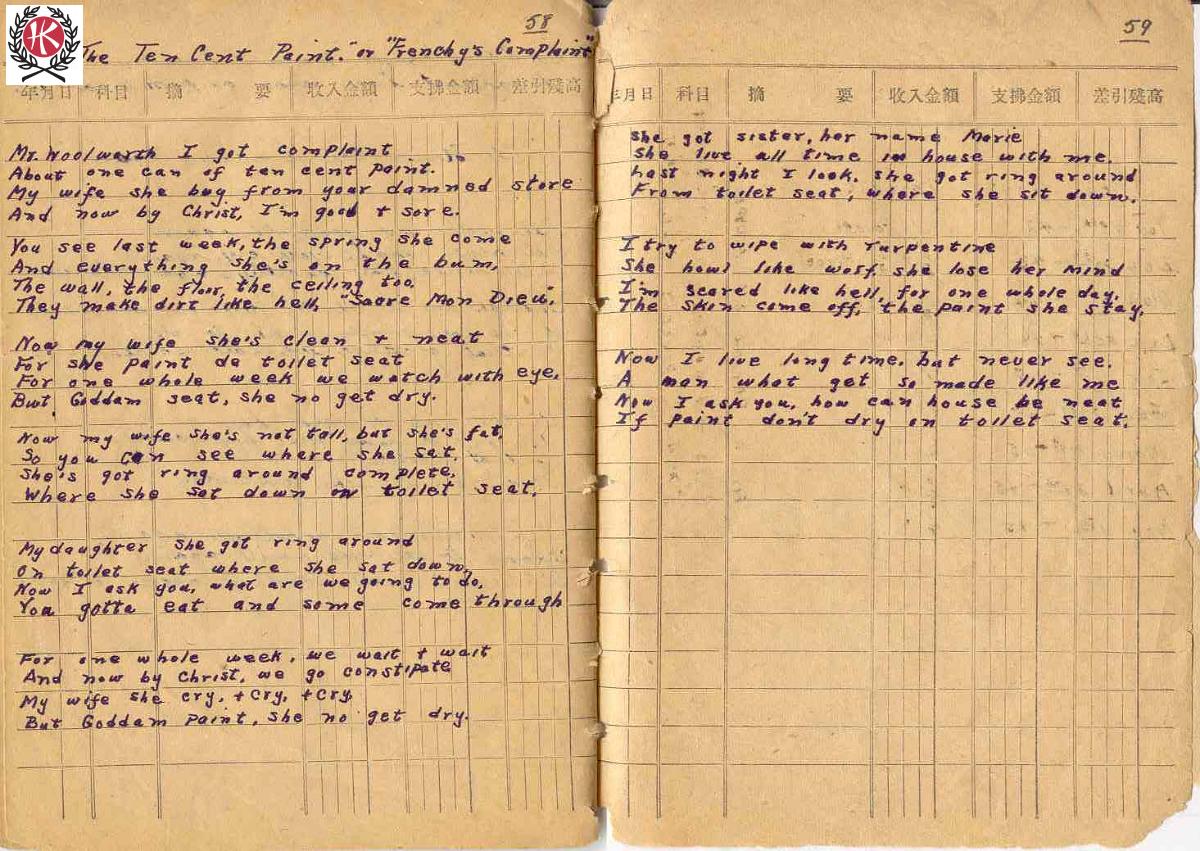 HK
58
"The Ten Cent Paint." or "Frenchy's Complaint"
年月日 科目 摘 要 収入金額 支拂金額 差引残高
Mr. Woolwarth I got complaint
About one can of ten cent paint.
My wife she buy from your damned store
And now by Christ, I'm good + sore.
You see last week, the spring she come
And everything she's on the bum,
The wall, the floor, the ceiling too,
They make dirt like hell, "Sacre Mon Dieu".
Now my wife she's clean + neat
For she paint da toilet seat
For one whole week we watch with eye,
But Goddam seat, she no get dry.
Now my wife she's not tall, but she's fat,
So you can see where she sat.
She's got ring around complete,
Where she sat down on toilet seat.
My daughter she got ring around
On toilet seat where she sat down,
Now I ask you, what are we going to do,
You gotta eat and some come through
For one whole week, we wait + wait
And now by Christ, we go constipate
My wife she cry, + cry, + cry,
But Goddam paint, she no get dry.
59
年月日 科目 摘 要 収入金額 支拂金額 差引残高
She got sister, her name Marie
She live all time in house with me.
Last night I look, she got ring around
From toilet seat, where she sit down.
I try to wipe with Turpentine
She howl like wolf, she lose her mind
I'm scared like hell, for one whole day,
The skin come off, the paint she stay,
Now I live long time, but never see.
A man what get so made like me
Now I ask you, how can house be neat
If paint don't dry on toilet seat.